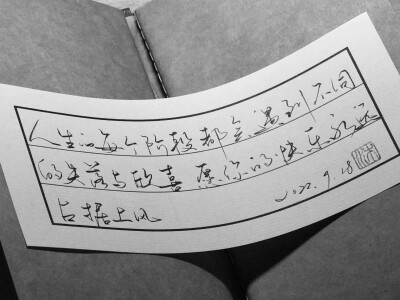 人生的每个阶段都会遇到不同
的失落与欢喜 愿你的快乐永远
占据上风
2022.9.28